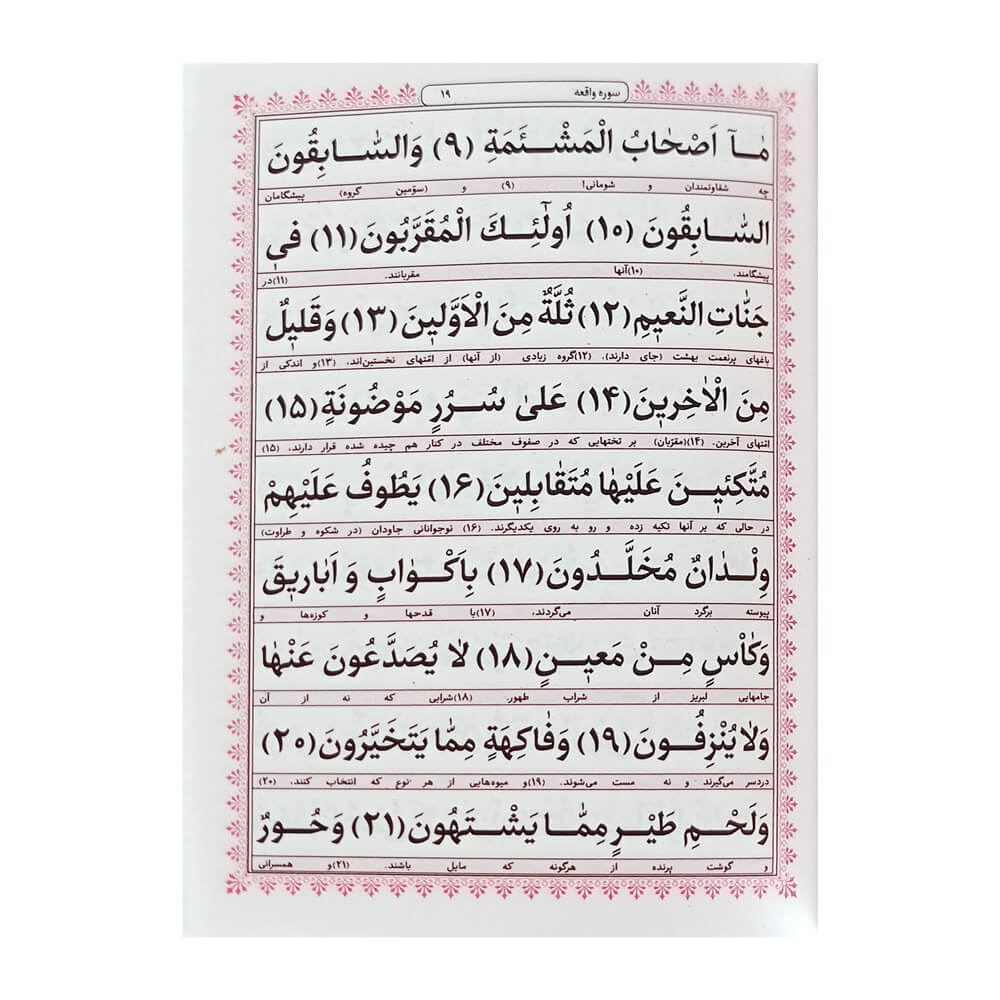 سوره واقعه ۱۹
مٰـآ اَصْحٰابُ الْمَشْـئَمَةِ (۹) وَالسّٰـابِقُونَ
چه شقاوتمندان و شومانی! (۹) و (سوّمین گروه) پیشگامان
السّٰـابِقُونَ (۱۰) اُولٰٓئِـكَ الْمُقَرَّبُونَ (۱۱) فی
پیشگامند، (۱۰)آنها مقربانند. (۱۱)در
جَنّٰاتِ النَّعیمِ(۱۲) ثُلَّةٌ مِنَ الْاَوَّلینَ (۱۳) وَ قَلیلٌ
باغهای پرنعمت بهشت (جای دارند). (۱۲)گروه زیادی (از آنها) از امّتهای نخستین‌اند، (۱۳)و اندکی از
مِنَ الْاٰخِرینَ (۱۴) عَلیٰ سُـرُرٍ مَوْضُونَةٍ (۱۵)
امّتهای آخرین. (۱۴)(مقرّبان) بر تختهایی که در صفوف مختلف در کنار هم چیده شده قرار دارند، (۱۵)
مُتَّكِئیـنَ عَلَیْهٰا مُتَقٰابِلینَ (۱۶) یَطُوفُ عَلَیْهِمْ
در حالی که بر آنها تکیه زده و رو به روی یکدیگرند. (۱۶) نوجوانانی جاودان (در شکوه و طراوت)
وِلْـدٰانٌ مُخَلَّـدُونَ (۱۷) بِاَكْـوٰابٍ وَ اَبٰاریقَ
پیوسته برگرد آنان می‌گردند، (۱۷)با قدحها و کوزه‌ها و
وَكَاْسٍ مِـنْ مَعیـنٍ (۱۸) لٰا یُصَدَّعُونَ عَنْهٰا
جامهایی لبریز از شراب طهور. (۱۸)شرابی که نه از آن
وَلٰا یُنْزِفُـونَ (۱۹) وَفٰاكِهَةٍ مِمّٰا یَتَخَیَّرُونَ (۲۰)
دردسر می‌گیرند و نه مست می‌شوند. (۱۹)و میوه‌هایی از هر نوع که انتخاب کنند، (۲۰)
وَلَحْـمِ طَیْـرٍ مِمّٰـا یَشْـتَهُونَ (۲۱) وَ حُـورٌ
و گوشت پرنده از هرگونه که مایل باشند. (۲۱)و همسرانی